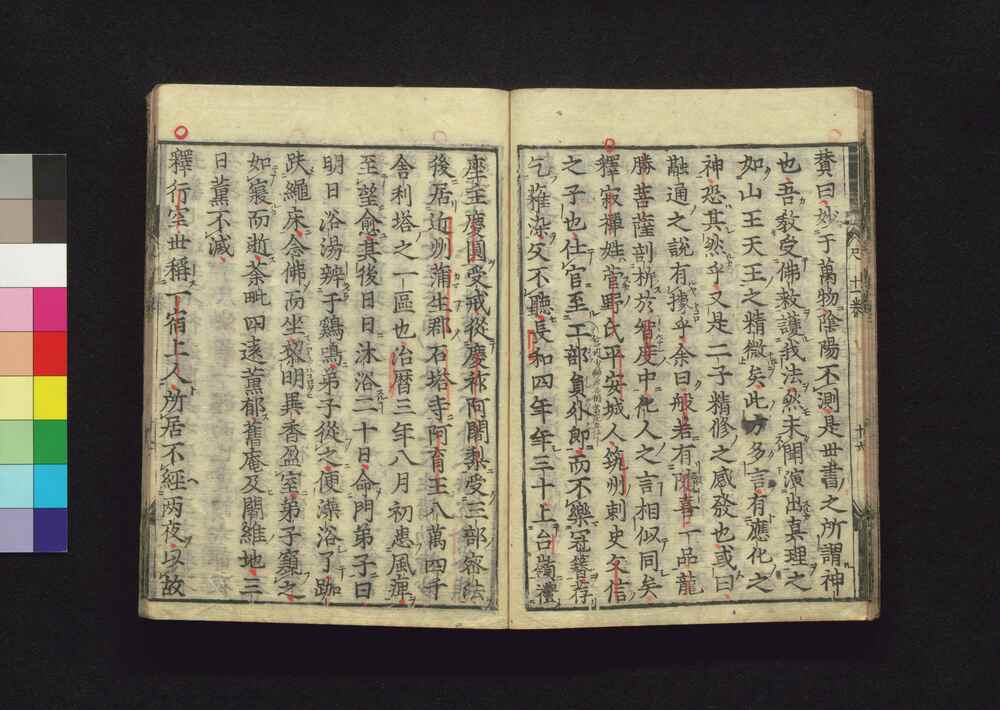 賛曰妙于萬物陰陽不測是世書之所謂神
也吾教受佛敕護我法然未聞演出真理之
如山王天王之精微矣此方多言有應化之
神恐其然乎又是二子精修之感發也或曰
融通之說有據乎余曰般若有隨喜一品龍
勝菩薩剖析於智度中他人之言相似同矣
釋寂禪姓菅野氏平安城人筑州刺史文信
之子也仕官至工部員外郎而不樂冠簪荐
乞薙染父不聽長和四年年三十上台嶺禮
座主慶圓受戒從慶祚阿闍梨受三部密法
後居近州蒲生郡石塔寺阿育王八萬四千
舍利塔之一區也治曆三年八月初應風痺
至望愈其後日日沐浴二十日命門弟子曰
明日浴湯辨于鷄鳴弟子從之便澡浴了跏
趺繩床念佛而坐黎明異香盈室弟子窺之
如寢而逝荼毗四遠薰郁舊庵及闍維地三
日薰不滅
釋行空世稱一宿上人所居不經兩夜以故